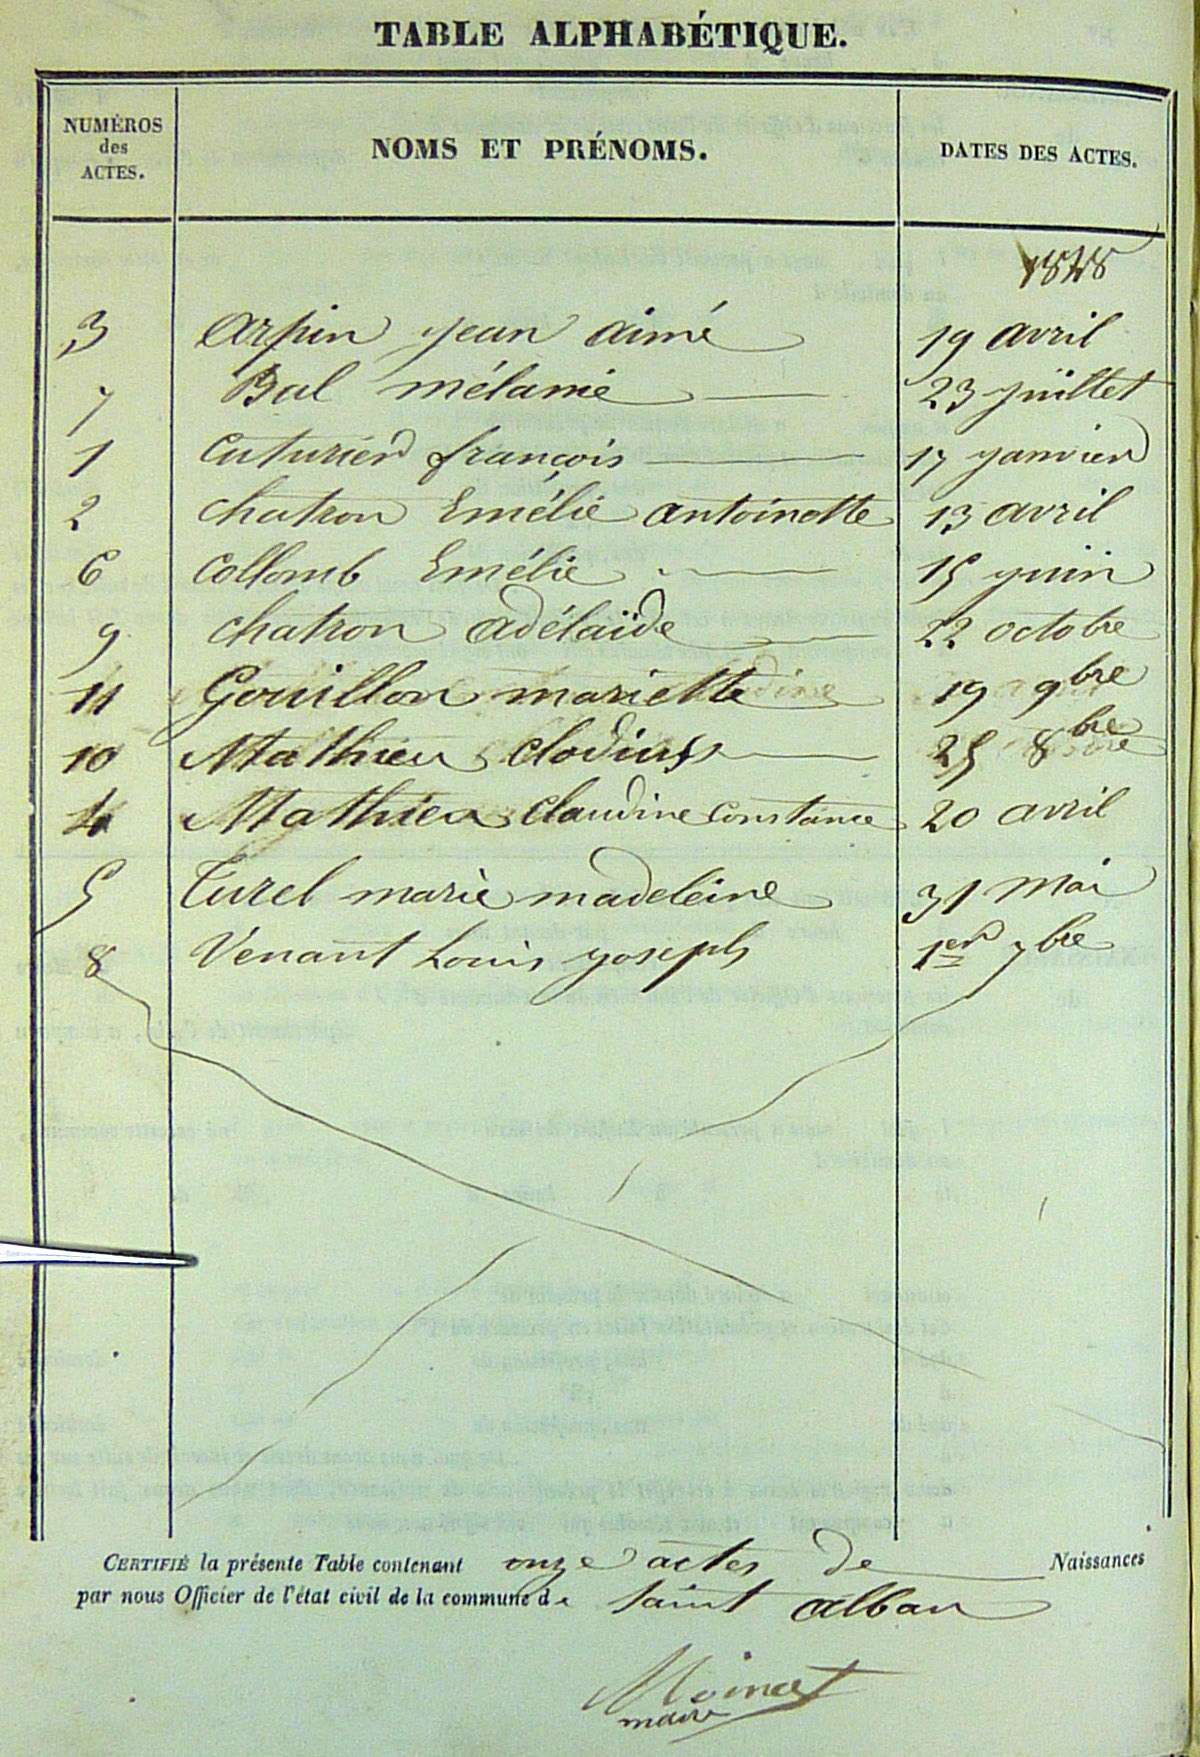 TABLE ALPHABÉTIQUE.
NUMÉROS des ACTES. NOMS ET PRÉNOMS. DATES DES ACTES.
1848
3 Arpin jean aimé 19 avril
7 Bal mélanie 23 juillet
1 Cuturier françois 17 janvier
2 chatron Emélie antoinette 13 avril
6 Collomb Emélie 15 juin
9 chatron adélaïde 22 octobre
11 Gouillon mariette 19 9bre
10 Mathieu clodius 25 8bre
4 Mathieu claudine constance 20 avril
5 Turel marie madeleine 31 mai
8 Venant Louis joseph 1er 7bre
CERTIFIÉ la présente Table contenant onze actes de Naissances
par nous Officier de l'état civil de la commune de saint alban
Moinet
maire